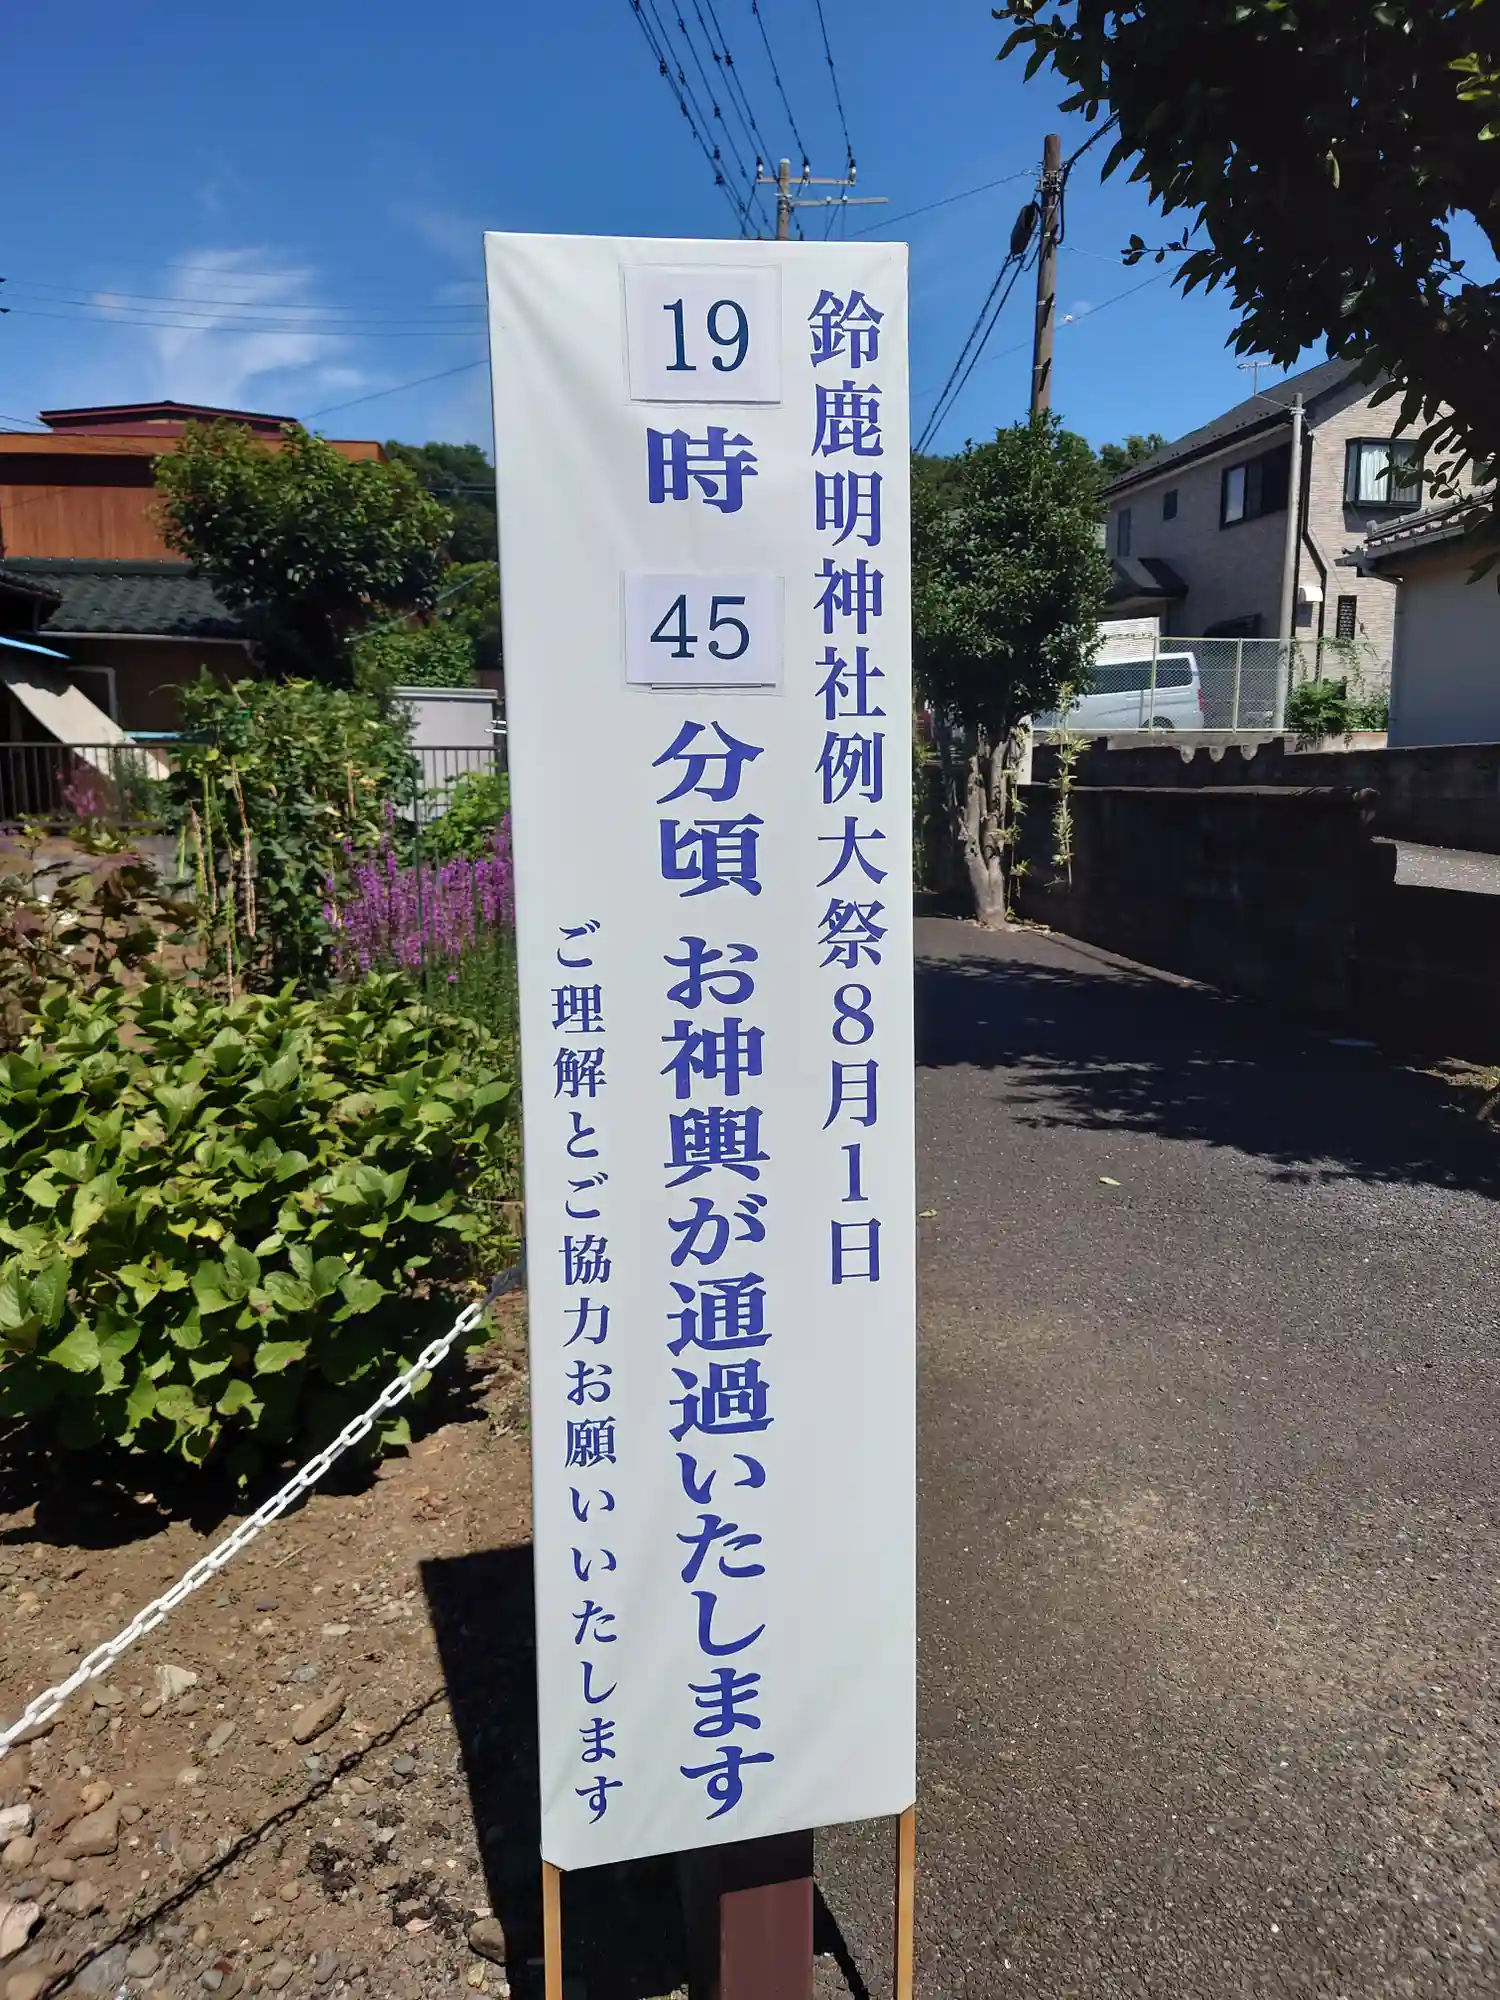 鈴鹿明神社例大祭8月1日
19時45分頃お神輿が通過いたします
ご理解とご協力お願いいたします